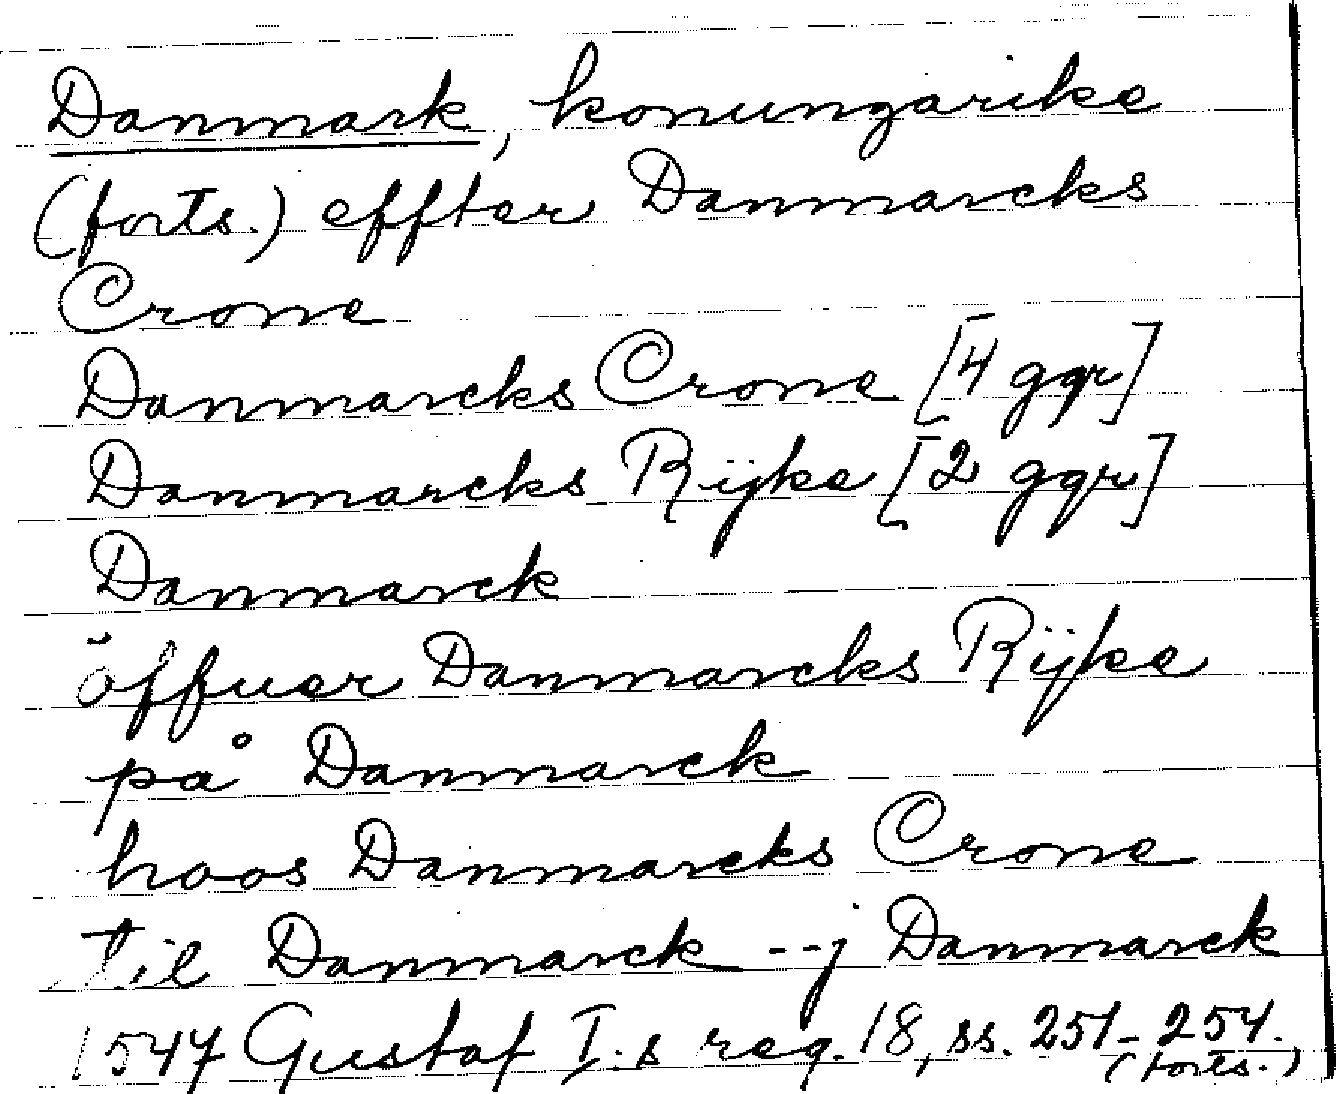 Danmark, konungarike
(forts.) effter Danmarcks
Crone
Danmarcks Crone [4 ggr]
Danmarcks Rijke [2 ggr]
Danmarck
öffuer Danmarcks Rijke
på Danmarck
hoos Danmarcks Crone
til Danmarck --j Danmarck
1547 Gustaf I:s reg. 18, ss. 251-254.
(forts.)